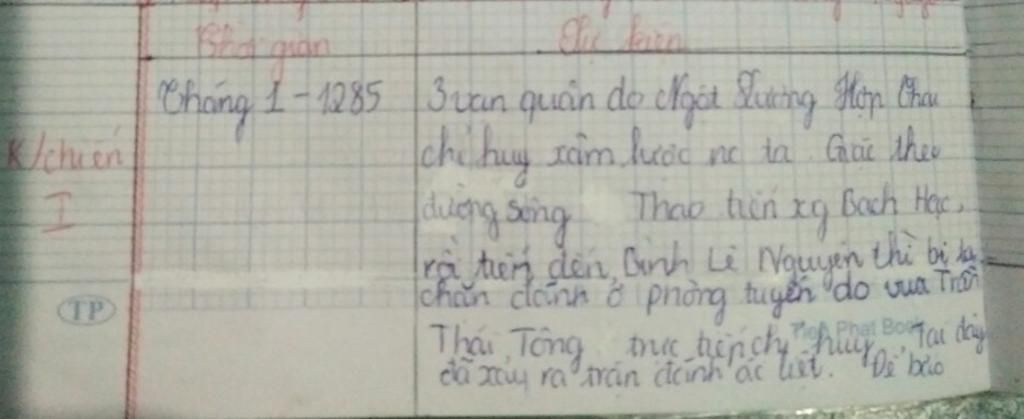 Thời gian Sự kiện
Tháng 1 - 1285 3 vạn quân do Ngột Lương Hợp Thai
K/chiến chỉ huy xâm lược nc ta. Giặc theo
I đường sông Thao tiến xg Bạch Hạc,
rồi tiến đến Bình Lệ Nguyên thì bị ta
TP chặn đánh ở phòng tuyến do vua Trần
Tiến Phát Book
Thái Tông trực tiếp chỉ huy. Tại đây
đã xảy ra trận đánh ác liệt. Để bảo